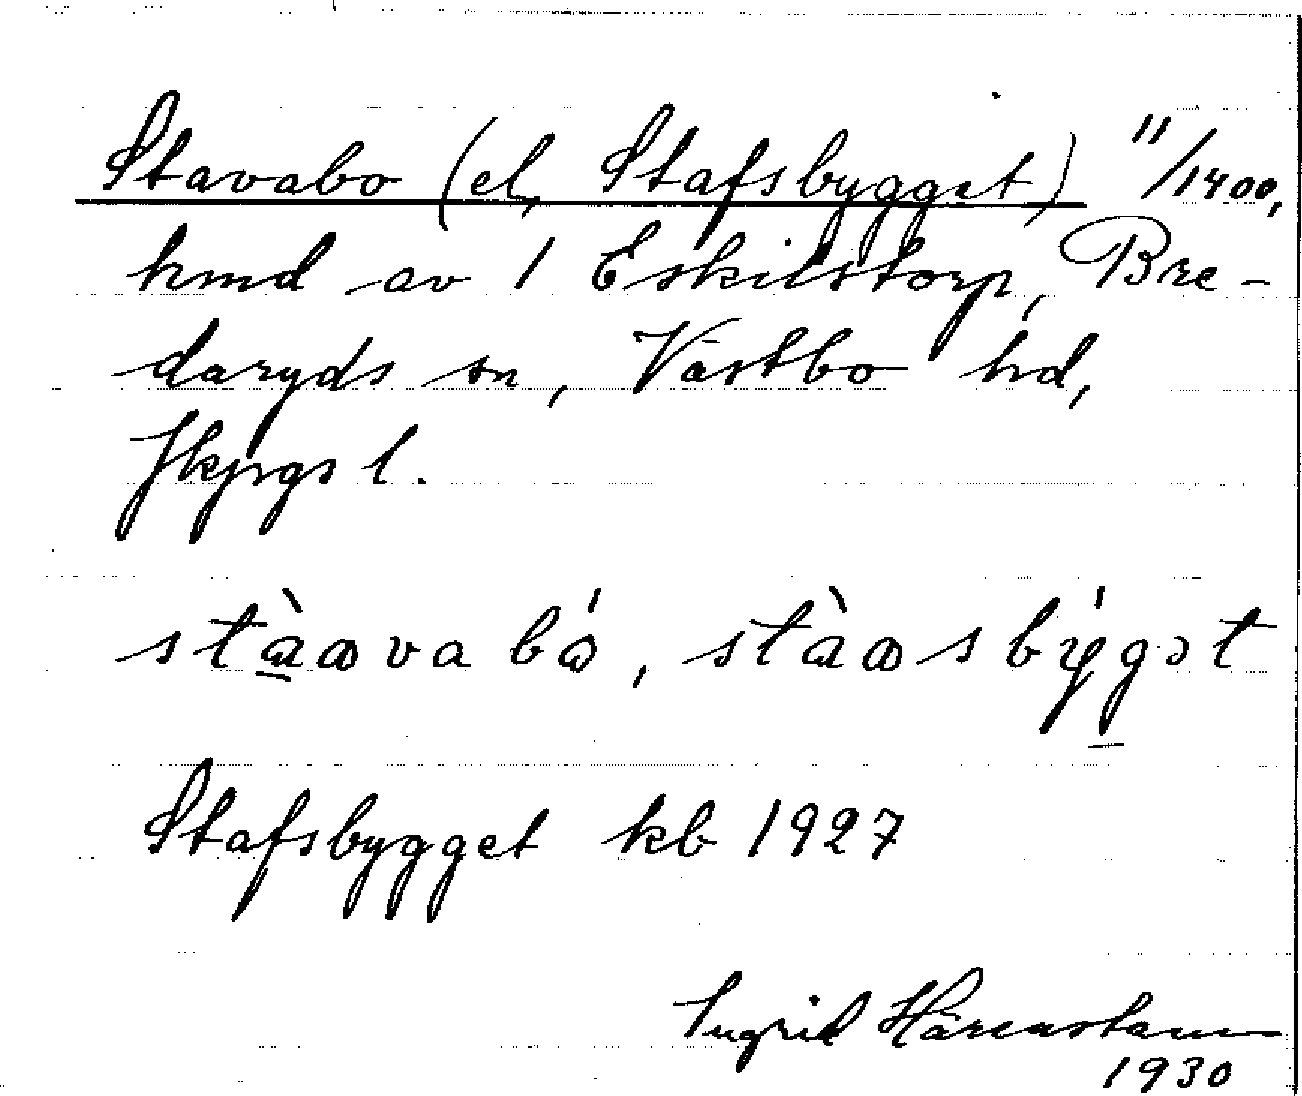 Stavabo (el. Stafsbygget) 11/1400,
hmd av 1 Eskilstorp, Bre-
daryds sn, Västbo hd,
Jkpgs l.
stàωva bó, stàωsbýgət
Stafsbygget kb 1927
Ingrid Härenstam
1930